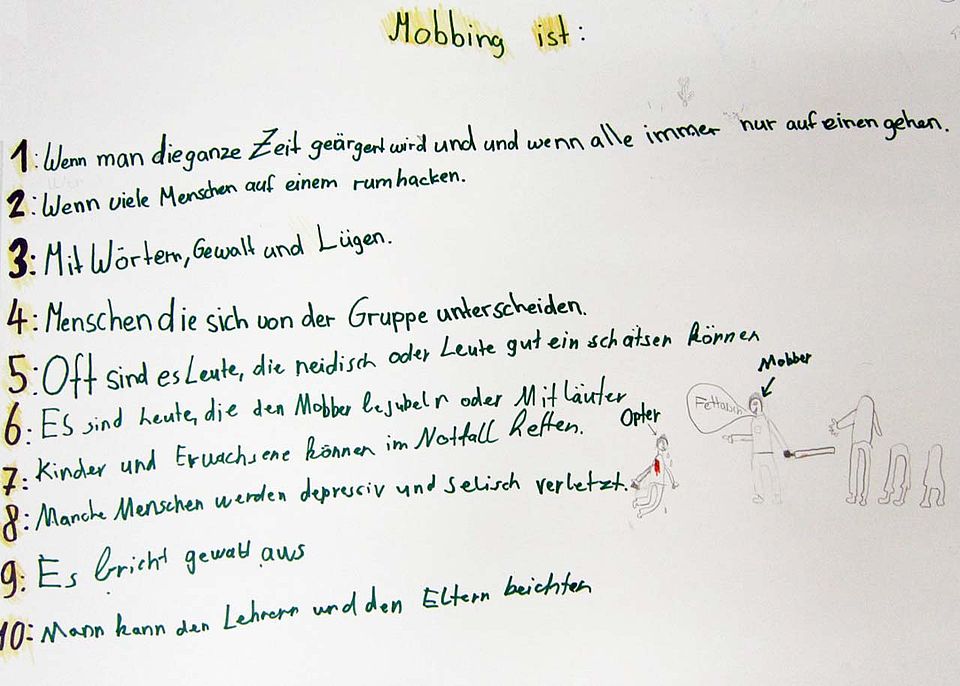 Mobbing ist:
1: Wenn man die ganze Zeit geärgert wird und und wenn alle immer nur auf einen gehen.
2: Wenn viele Menschen auf einem rumhacken.
3: Mit Wörtern, Gewalt und Lügen.
4: Menschen die sich von der Gruppe unterscheiden.
5: Oft sind es Leute, die neidisch oder Leute gut ein schätsen können
Mobber
6: ES sind Leute, die den Mobber bejubeln oder Mitläufer
Opfer
7: Kinder und Erwachsene können im Notfall helfen.
8: Manche Menschen werden depressiv und selisch verletzt.
9: Es bricht gewalt aus
10: Mann kann den Lehrern und den Eltern beichten